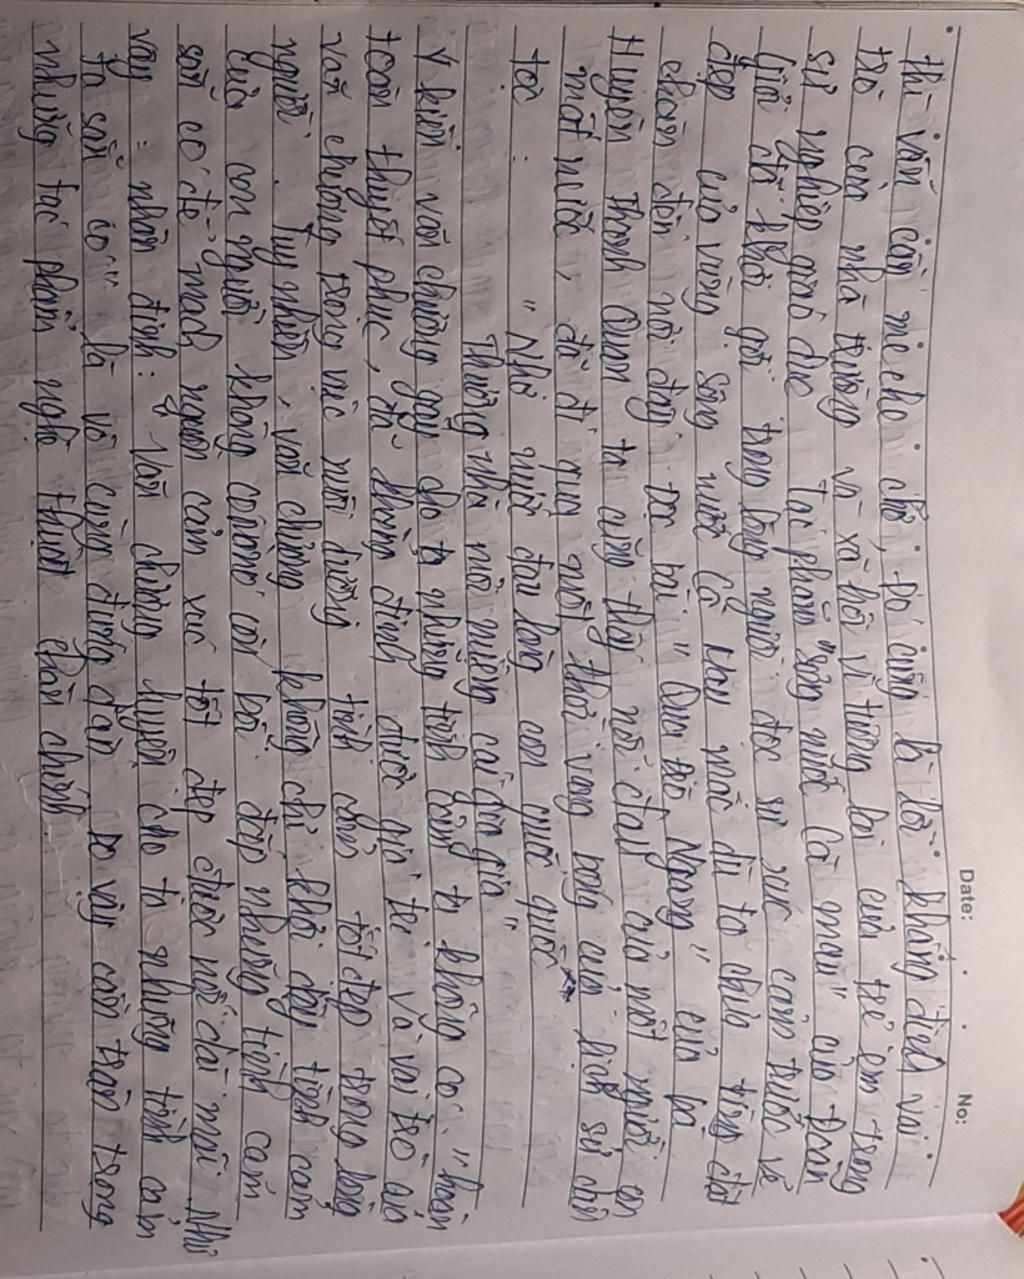 Date: No:
thì vẫn còn mẹ cho chỗ, đó cũng là lời khẳng định vai
trò của nhà trường và xã hội vì tương lai của trẻ em trong
sự nghiệp giáo dục Tác phẩm "sông nước Cà mau" của Đoàn
Giỏi đã khơi gợi trong lòng người đọc sự xúc cảm trước vẻ
đẹp của vùng sông nước Cà Mau mặc dù ta chưa từng đặt
chân đến nơi đây. Đọc bài "Qua Đèo Ngang" của bà
Huyện Thanh Quan ta cũng thấy nỗi đau của một người con
mất nước, đã đi qua một thời vang bóng của lịch sử dân
tộc : "Nhớ nước đau lòng con quốc quốc
Thương nhà mỏi miệng cái gia gia"
Ý kiến văn chương gây cho ta những tình cảm ta không có" hoàn
toàn thuyết phục, đã khẳng định được giá trị và vai trò của
văn chương trong việc nuôi dưỡng tình cảm tốt đẹp trong lòng
người. Tuy nhiên, văn chương không chỉ khơi dậy tình cảm
của con người không có mà còn bồi đắp những tình cảm
sẵn có để mạch nguồn cảm xúc tốt đẹp được nối dài mãi. Như
vậy : nhận định: "Văn chương luyện cho ta những tình cảm
ta sẵn có" là vô cùng đúng đắn Do vậy cần trân trọng
những tác phẩm nghệ thuật chân chính